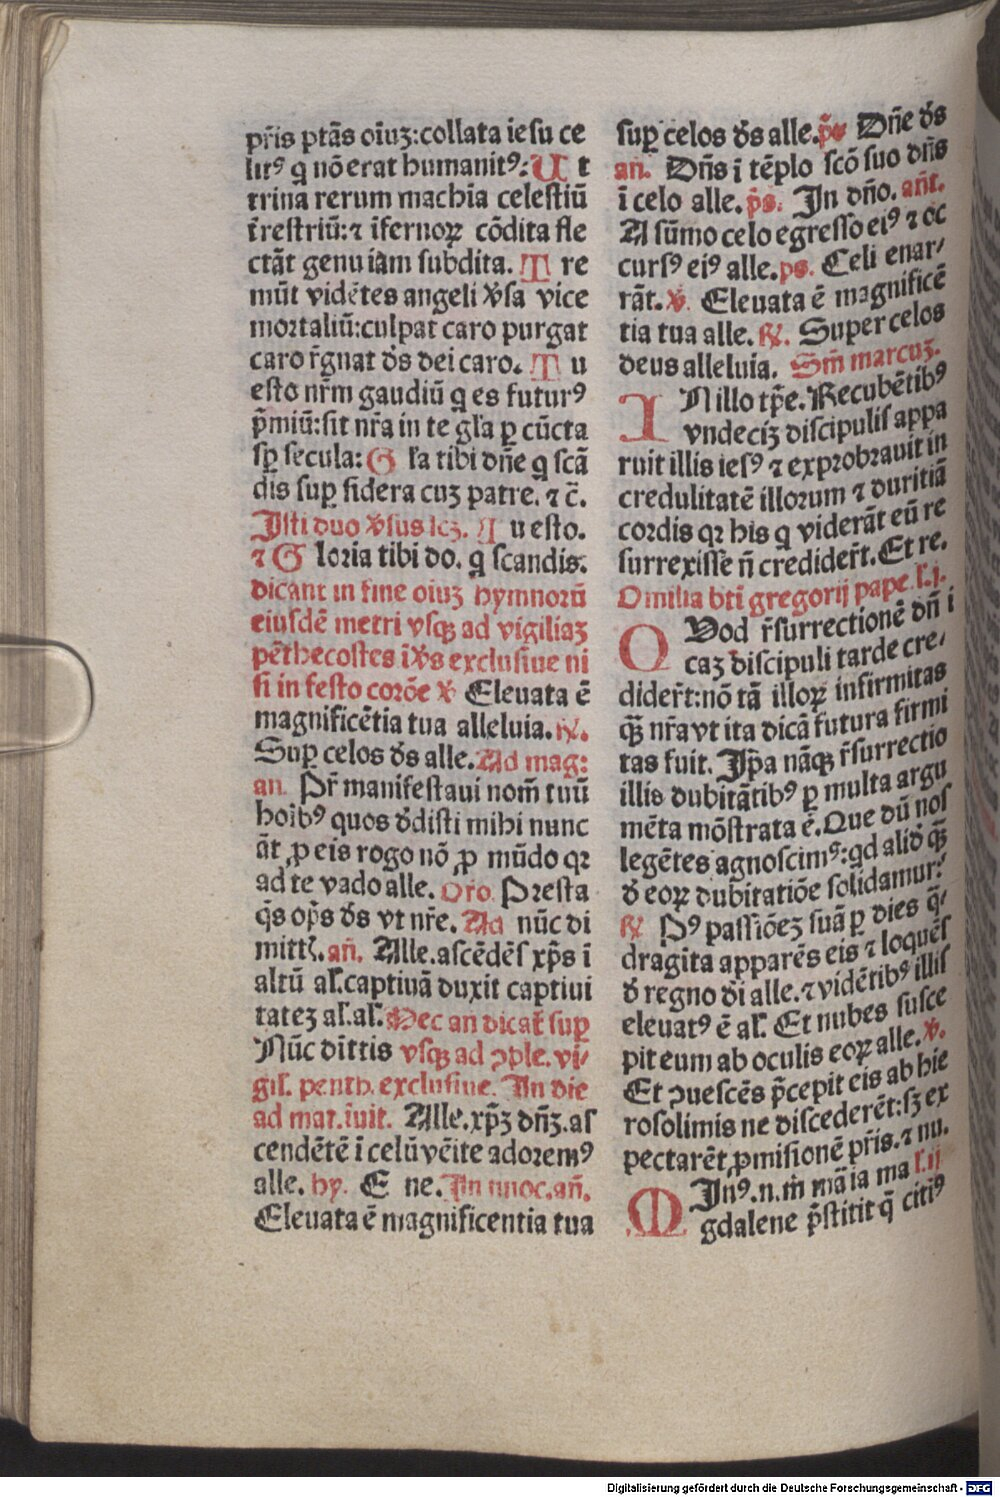 pr̃is ptãs oĩuʒ:collata iesu ce
litꝰ q nõ erat humanitꝰ: U t
trina rerum machĩa celestiũ
t̃restriũ:⁊ ĩfernoꝝ cõdita fle
ctãt genu iãm subdita. T re
mũt vidẽtes angeli v̾sa vice
mortaliũ:culpat caro purgat
caro r̃gnat d̾s dei caro. T u
esto nr̃m gaudiũ q es futurꝰ
p̃miũ:sit nr̃a in te gl̃a ꝑ cũcta
sꝑ secula: G l̃a tibi dñe q scã
dis suꝑ sidera cuʒ patre. ⁊ c̃.
Isti duo v̾sus T u esto.
⁊ G loria tibi do. q scandis.
dicant in fine oĩuʒ hymnorũ
eiusdẽ metri vsqꝫ ad vigiliaʒ
pẽthecostes ĩv̾s exclusiue ni
si in festo corõe v̾ Eleuata ẽ
magnificẽtia tua alleluia. ꝶ.
Suꝑ celos d̾s alle. Ad mag:
an. Pr̃ manifestaui nom̃ tuũ
hoĩbꝰ quos d̾disti mihi nunc
ãt ꝓ eis rogo nõ ꝓ mũdo qꝛ
ad te vado alle. Oro. Presta
q̃s op̃s d̾s vt nr̃e. Ad nũc di
mittꝭ. añ. Alle. ascẽdẽs xp̃s ĩ
altũ al̃. captiuã duxit captiui
tateʒ al̃. al̃. Hec an dicat̃ suꝑ
Nũc dĩttis vsqꝫ ad ꝯple. vi/
gil̃. penth. exclusiue. In die
ad mat. ĩuit. Alle. xp̃ʒ dñʒ. as
cendẽtẽ ĩ celũ vẽite adoremꝰ
alle. hy. E ne. In nnoc. añ.
Eleuata ẽ magnificentia tua
suꝑ celos d̾s alle. p̃s Dñe d̾s
an. Dñs ĩ tẽplo scõ suo dñs
ĩ celo alle. p̃s. In dño. añt.
A sũmo celo egresso eiꝰ ⁊ oc
cursꝰ eiꝰ alle. ps. Celi enar/
rãt. v̾. Eleuata ẽ magnificẽ
tia tua alle. ꝶ. Super celos
deus alleluia. Sm̃ marcuʒ.
I N illo tp̃e. Recubẽtibꝰ
vndeciʒ discipulis appa
ruit illis iesꝰ ⁊ exprobrauit in
credulitatẽ illorum ⁊ duritiã
cordis qꝛ his q viderãt eũ re
surrexisse ñ credider̃t. Et re.
Omilia bti gregorij pape. l̃. j.
Q Vod r̃surrectionẽ dñi
caʒ discipuli tarde cre/
dider̃t: nõ tã illoꝝ infirmitas
qꝫ̃ nr̃a vt ita dicã futura firmi
tas fuit. Ip̃a nãqꝫ r̃surrectio
illis dubitãtibꝰ ꝑ multa argu
mẽta mõstrata ẽ. Que dũ nos
legẽtes agnoscimꝰ: qd aliđ qꝫ̃
d̾ eoꝝ dubitatiõe solidamur.
ꝶ Pꝰ passiõeʒ suã ꝑ dies q̃/
dragita apparẽs eis ⁊ loquẽs
d̾ regno d̾i alle. ⁊ vidẽtibꝰ illis
eleuatꝰ ẽ al̃. Et nubes susce
pit eum ab oculis eoꝝ alle. v̾.
Et ꝯuescẽs p̃cepit eis ab hie
rosolimis ne discederẽt: sʒ ex
pectarẽt ꝓmisionẽ pr̃is. ⁊ nu.
M Inꝰ. n. m̃ mãia ma l̃. ij
gdalene p̃stitit q̃ citiꝰ
Digitalisierung gefördert durch die Deutsche Forschungsgemeinschaft - DFG